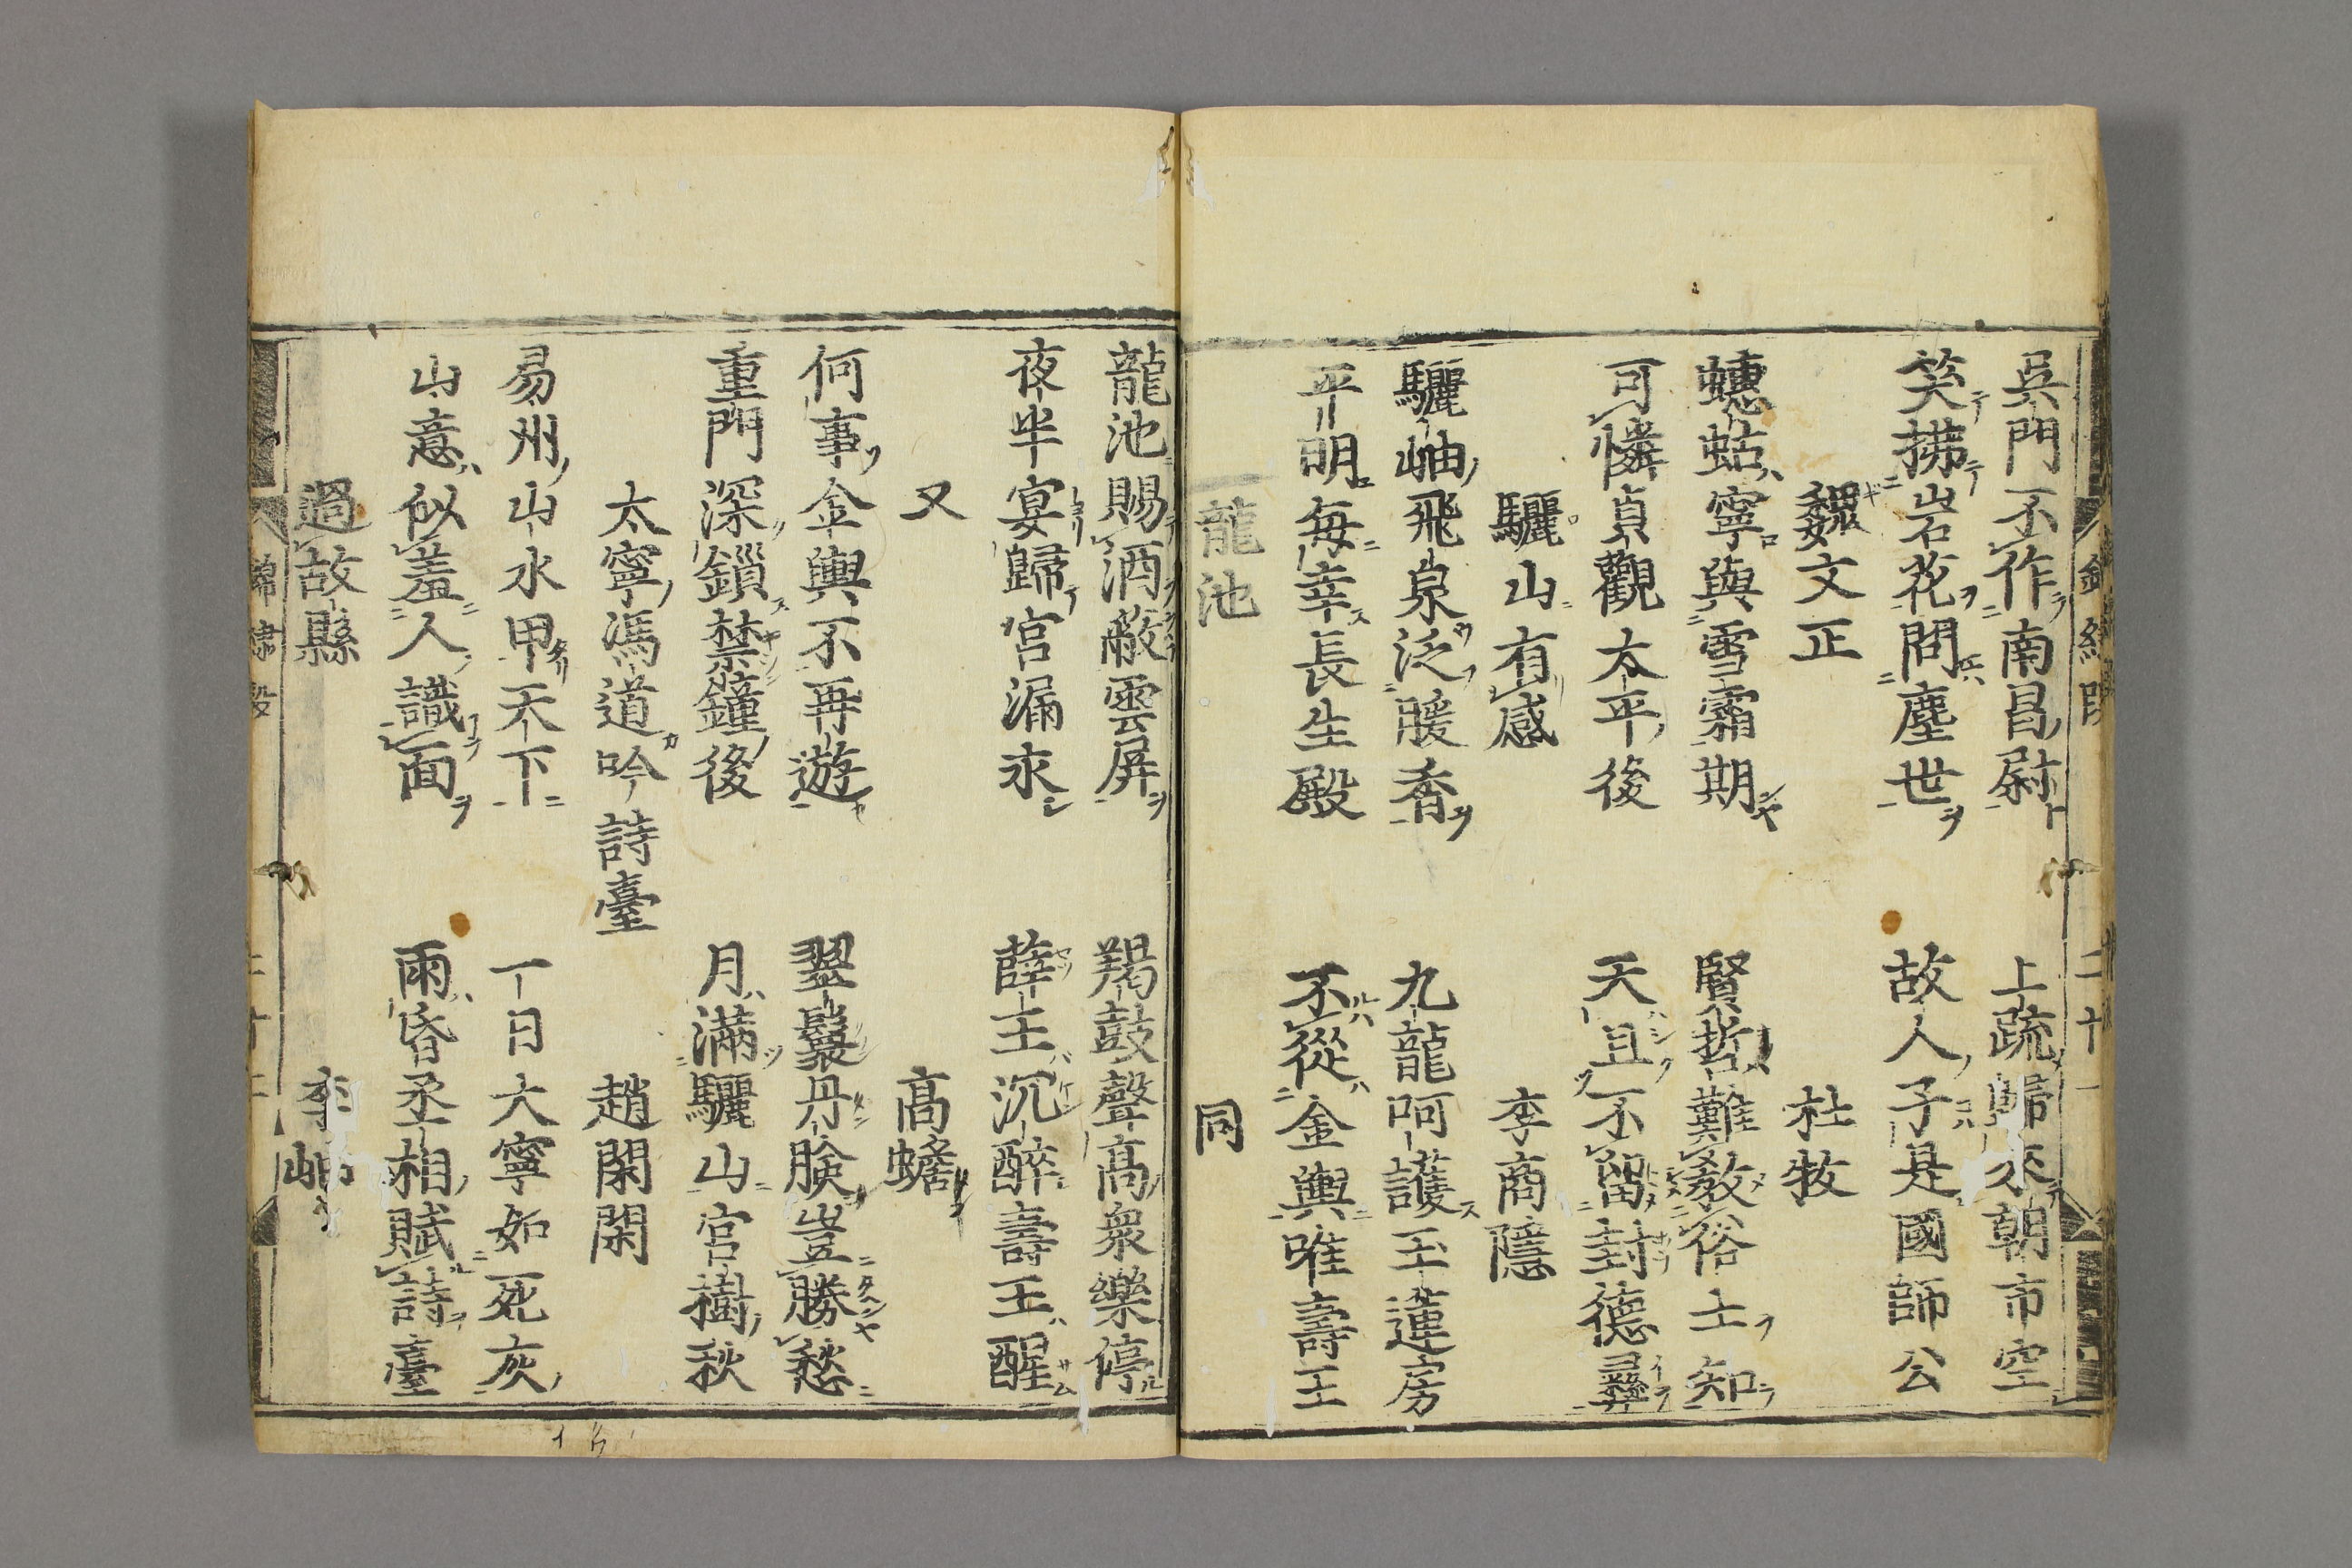 吳門不作南昌尉 上疏歸來朝市空
笑拂岩花問塵世 故人子是國師公
魏文正 杜牧
蟪蛄寧與雪霜期 賢哲難敎俗士知
可憐貞觀太平後 天且不留封德彝
驪山有感 李商隱
驪岫飛泉泛暖香 九龍呵護玉蓮房
平明每幸長生殿 不從金輿唯壽王
龍池 同
龍池賜酒敞雲屏 羯鼓聲高衆樂停
夜半宴歸宮漏永 薛王沉醉壽王醒
又 高蟾
何事金輿不再遊 翠鬟丹臉豈勝愁
重門深鎖禁鐘後 月滿驪山宮樹秋
太寧馮道吟詩臺 趙閑閑
易州山水甲天下 一日大寧如死灰
山意似羞人識面 雨昏丞相賦詩臺
過故縣
二十一